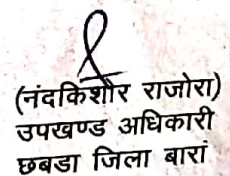 (नंदकिशोर राजोरा)
उपखण्ड अधिकारी
छबडा जिला बारां